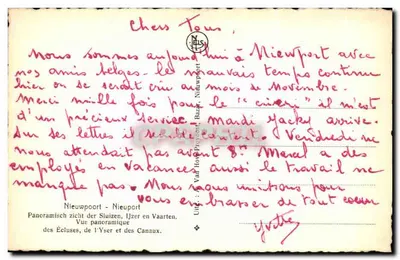 Chers Tous,
Nous sommes aujourd'hui à Nieuwport avec
nos amis belges - le mauvais temps continu
hier on se serait cru au mois de Novembre.
Merci mille fois pour le "ciré" il m'est
d'un précieux service. Mardi Jacky arrive.
Sur ses lettres il semble content. Vendredi on
nous attendait pas avant 8h. Marcel a des
employés en vacances aussi le travail ne
manque pas. Nous nous unissons pour
vous embrasser de tout coeur
Yvette
Nieuwpoort - Nieuport
Panoramisch zicht der Sluizen, IJzer en Vaarten.
Vue panoramique
des Ecluses, de l'Yser et des Canaux.